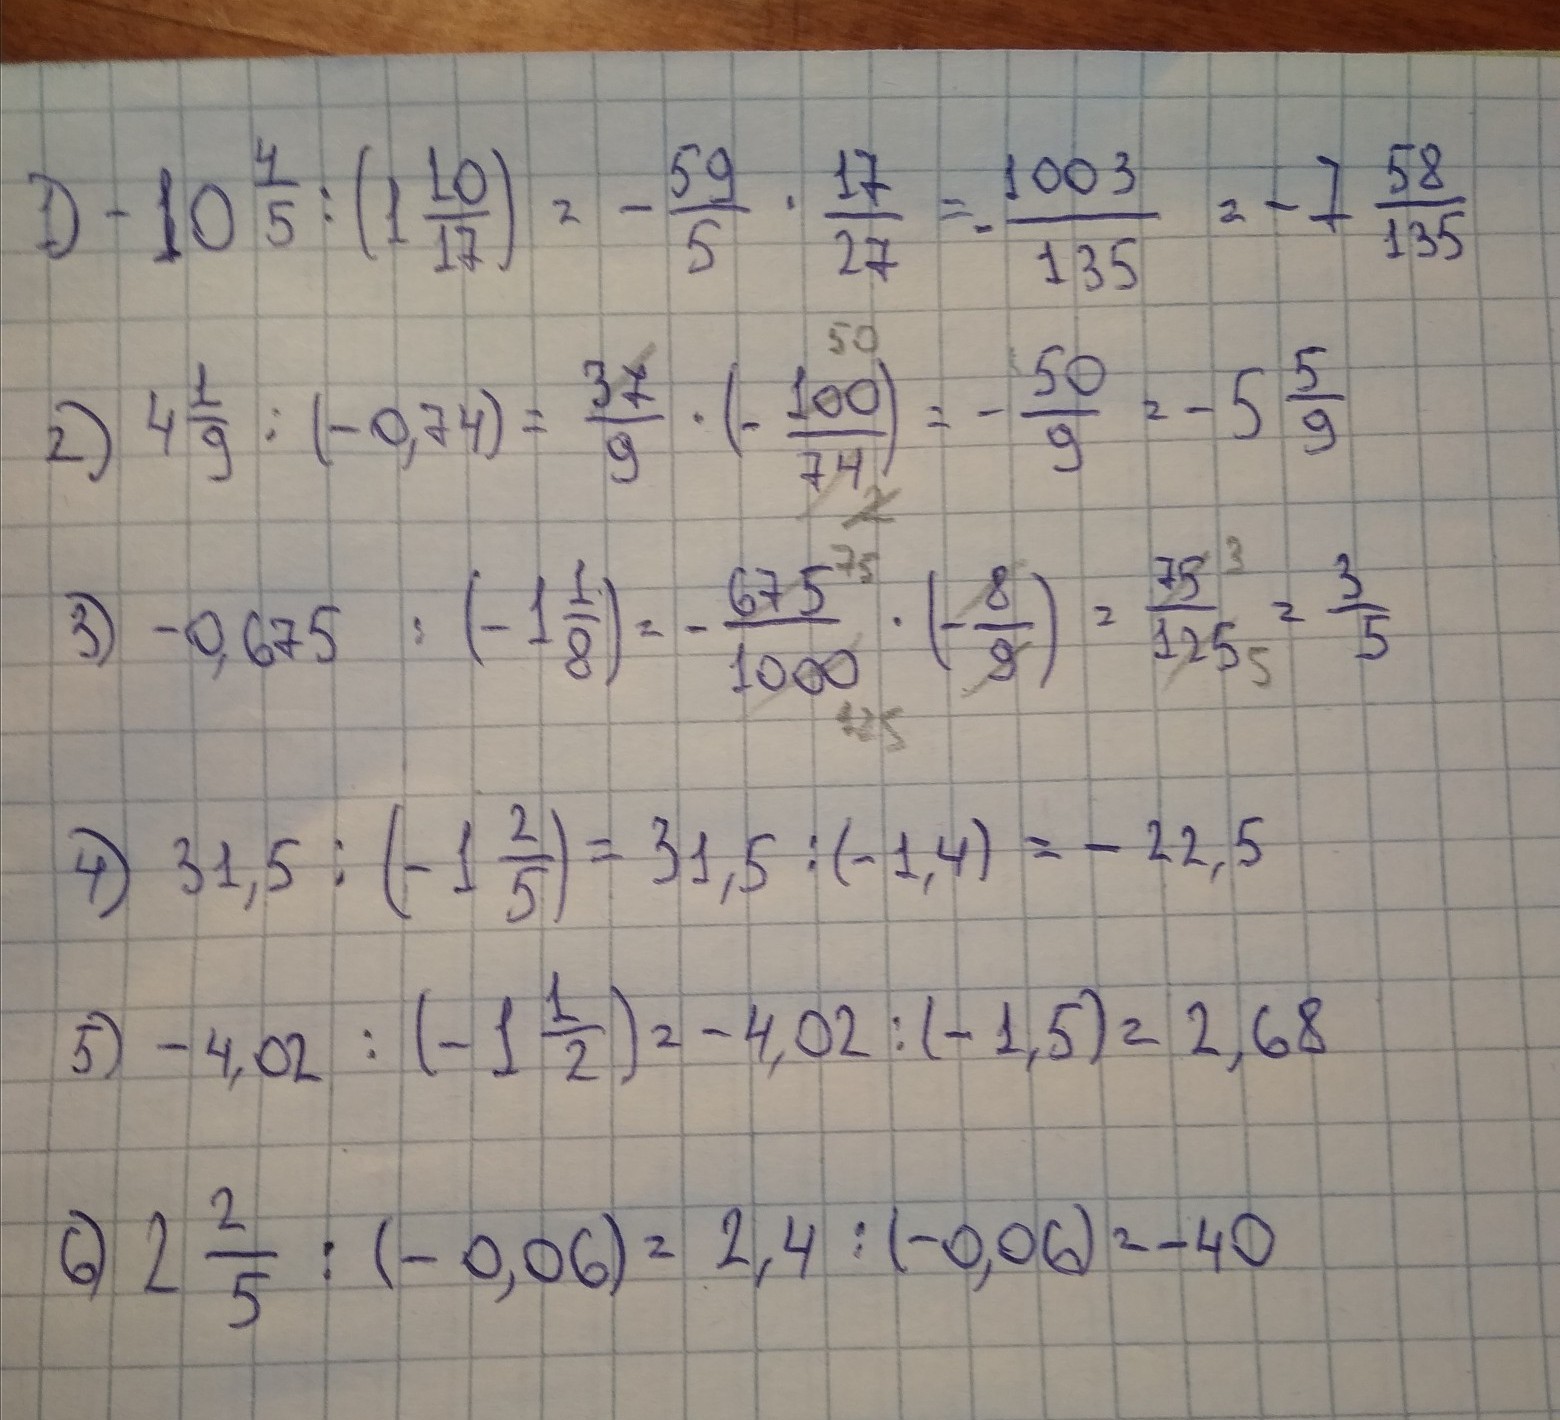 1) -10 4/5 : (1 10/17) = -59/5 · 17/27 = -1003/135 = -7 58/135
2) 4 1/9 : (-0,74) = 37/9 · (-100/74) = -50/9 = -5 5/9
3) -0,675 : (-1 1/8) = -675/1000 · (-8/9) = 75/125 = 3/5
4) 31,5 : (-1 2/5) = 31,5 : (-1,4) = -22,5
5) -4,02 : (-1 1/2) = -4,02 : (-1,5) = 2,68
6) 2 2/5 : (-0,06) = 2,4 : (-0,06) = -40